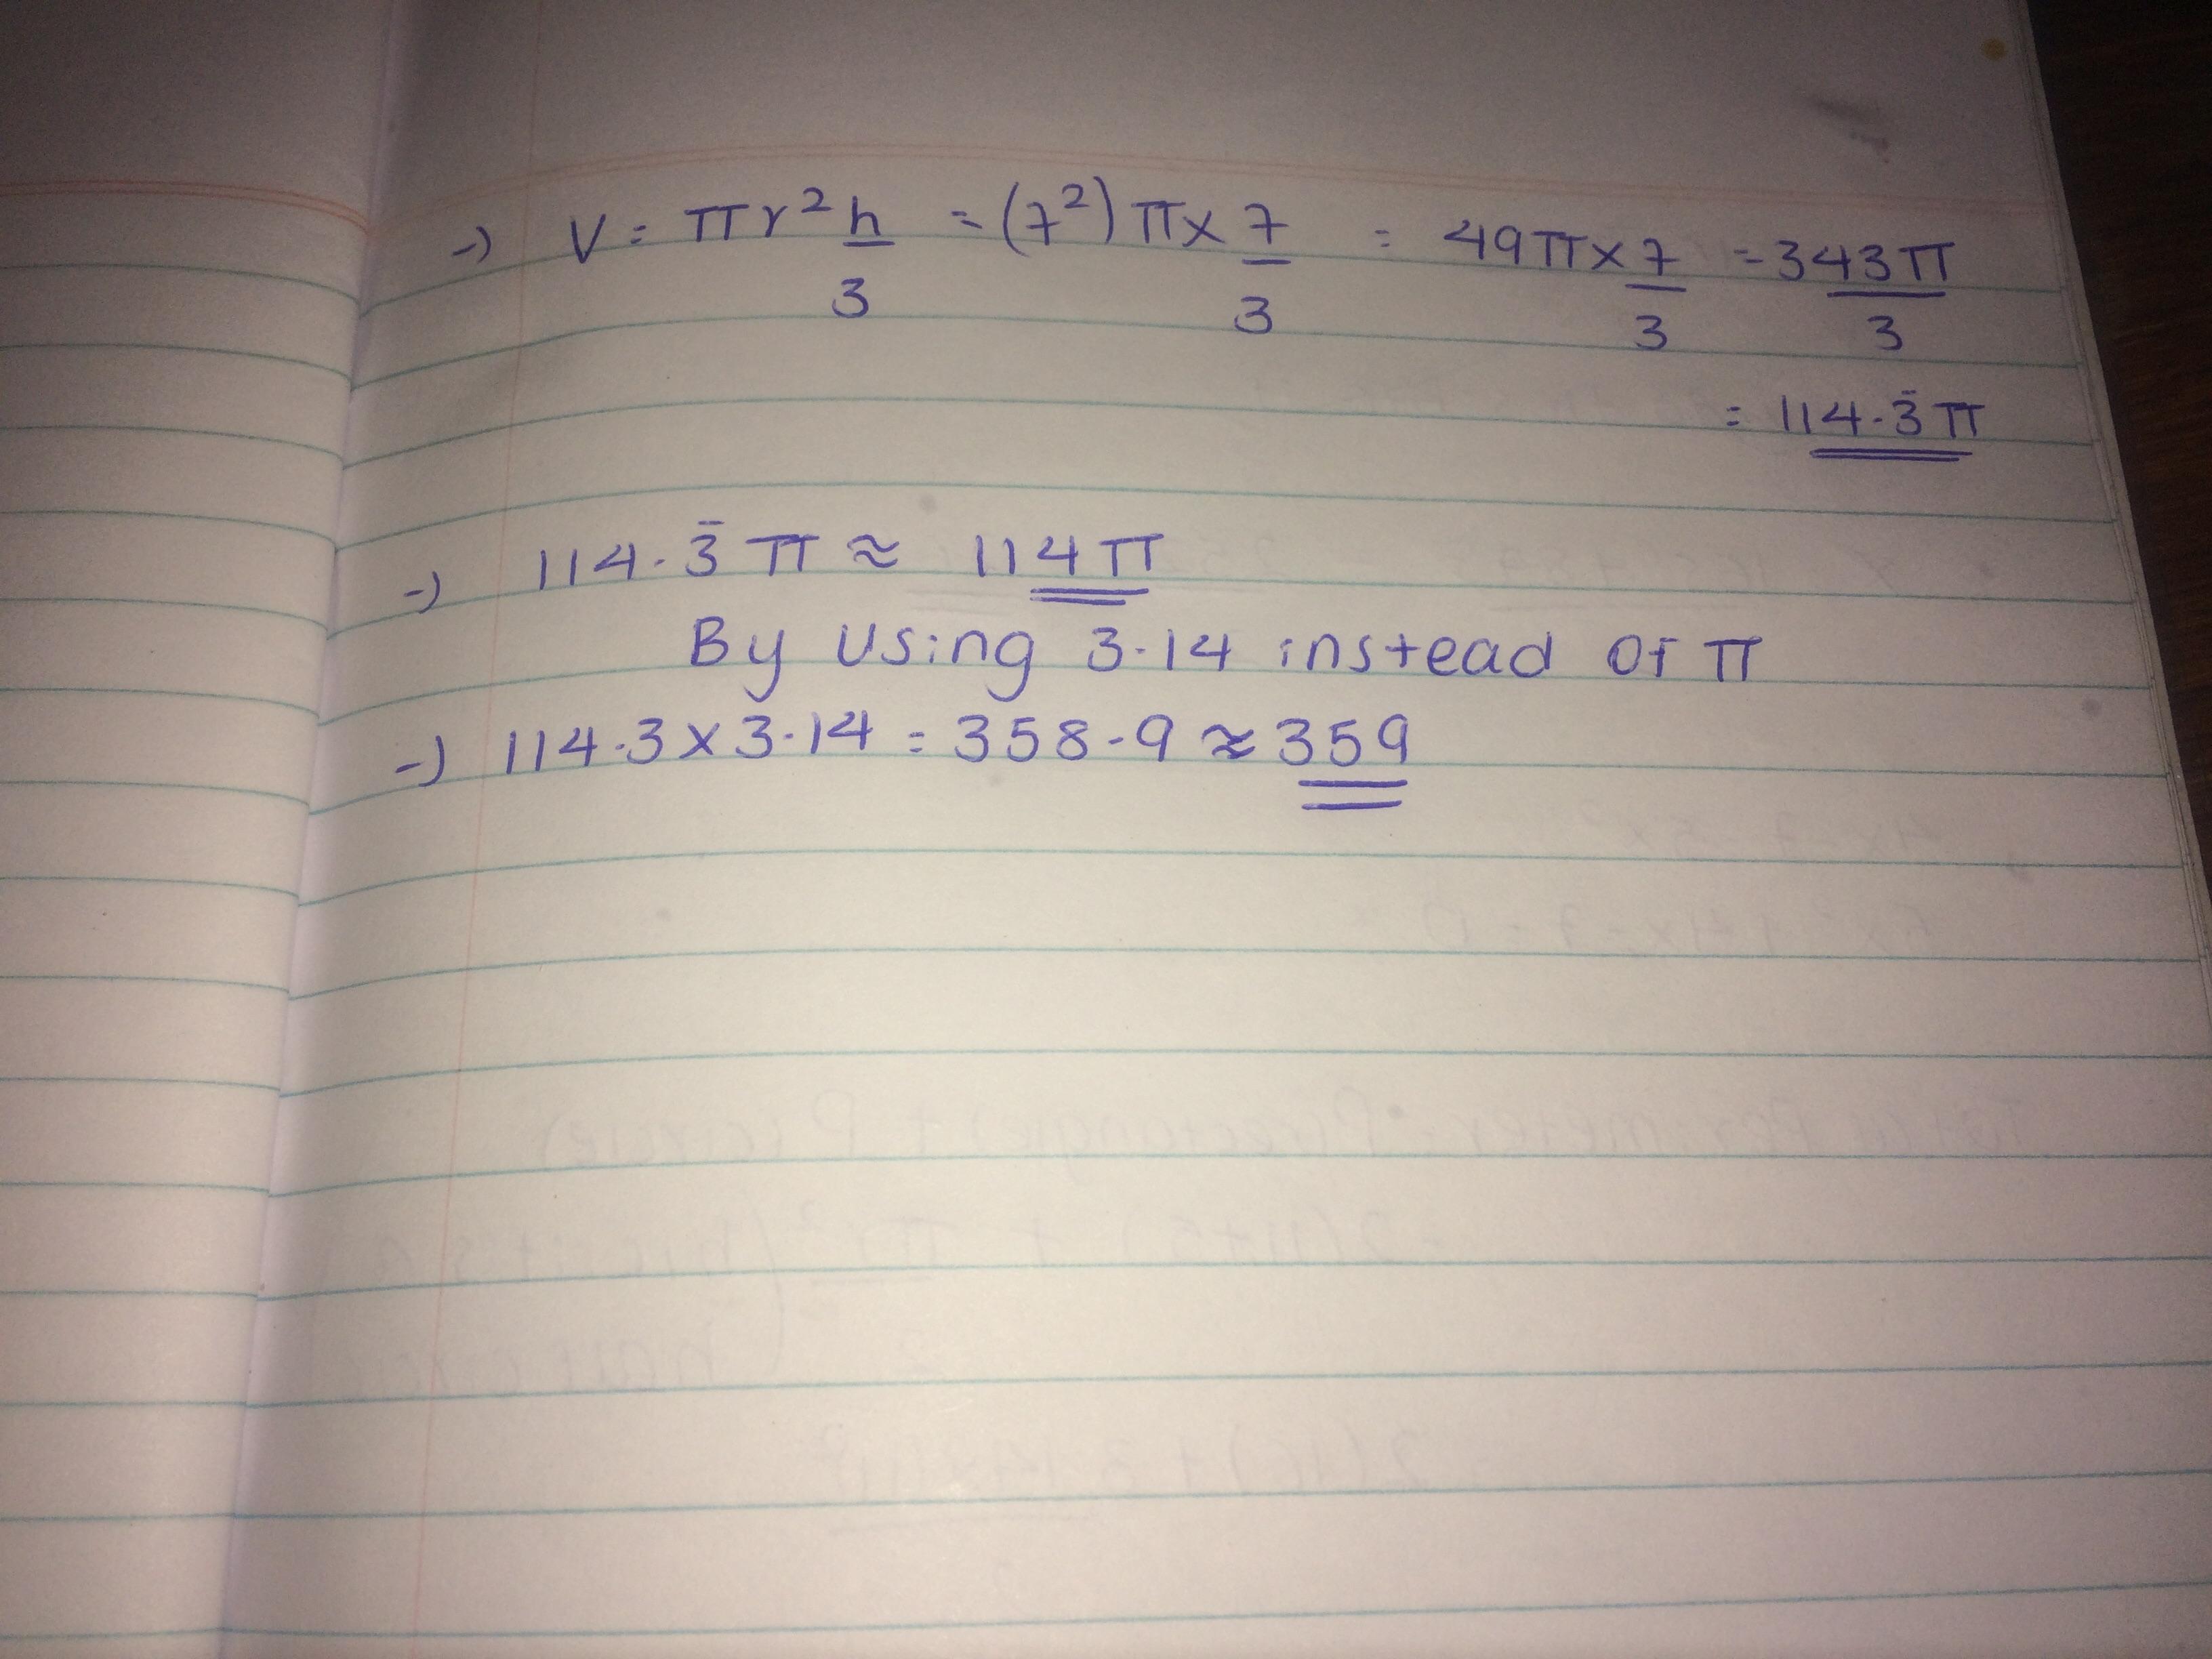 → V = πr² h/3 = (7²) π × 7/3 = 49π × 7/3 = 343π/3
= 114.3̄ π
→ 114.3̄ π ≈ 114π
By using 3.14 instead of π
→ 114.3 × 3.14 = 358.9 ≈ 359